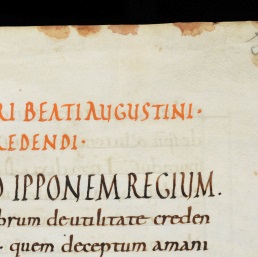 RI BEATI AUGUSTINI·
REDENDI·
O IPPONEM REGIUM.
brum deutilitate creden
· quem deceptum amani